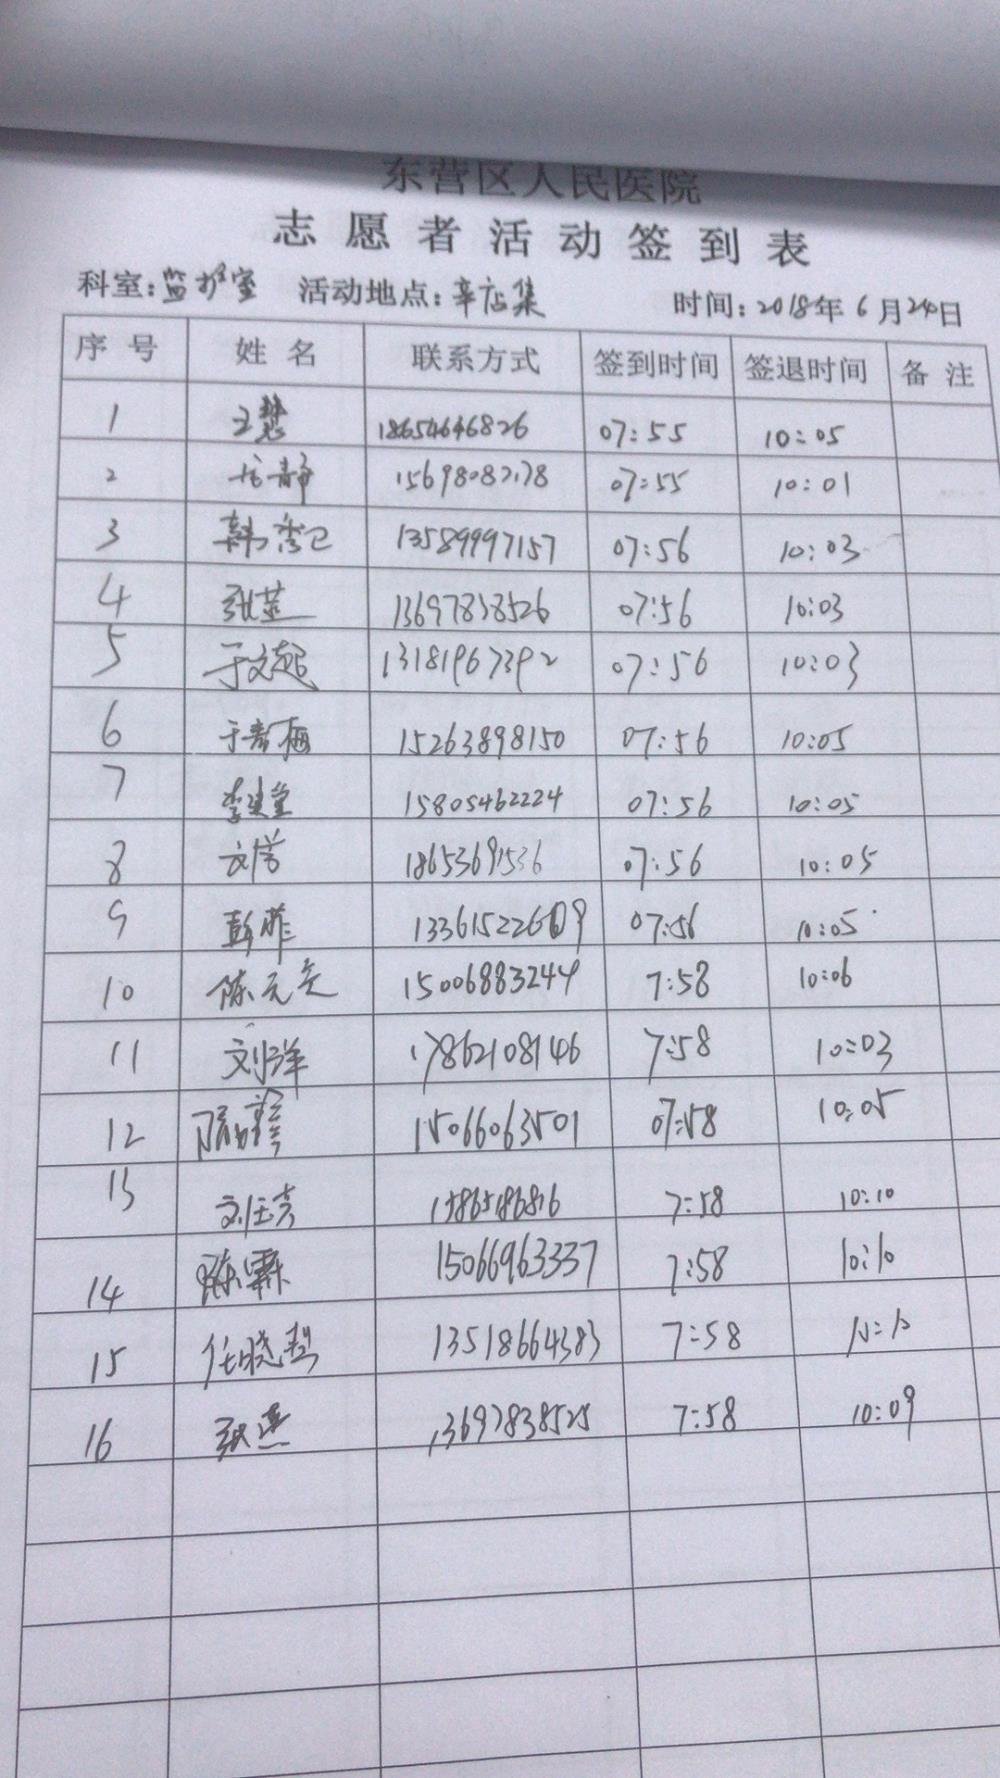 东营区人民医院
志愿者活动签到表
科室:监护室 活动地点:辛店集 时间:2018年6月24日
序号 姓名 联系方式 签到时间 签退时间 备注
1 王慧 18654646826 07:55 10:05
2 静 07:55 10:01
3 韩秀卫 13589997157 07:56 10:03
4 张 13697838526 07:56 10:03
5 于文起 13181967392 07:56 10:03
6 于春梅 15263898150 07:56 10:05
7 李建堂 15805462224 07:56 10:05
8 18653691536 07:56 10:05
9 彭菲 07:56 10:05
10 陈元元 15006883244 7:58 10:06
11 刘洋 17862108146 7:58 10:03
12 15066063501 07:58 10:05
13 刘 1586586816 7:58 10:10
14 陈霖 15066963337 7:58 10:10
15 任晓 13518664383 7:58 10:10
16 张燕 13697838525 7:58 10:09